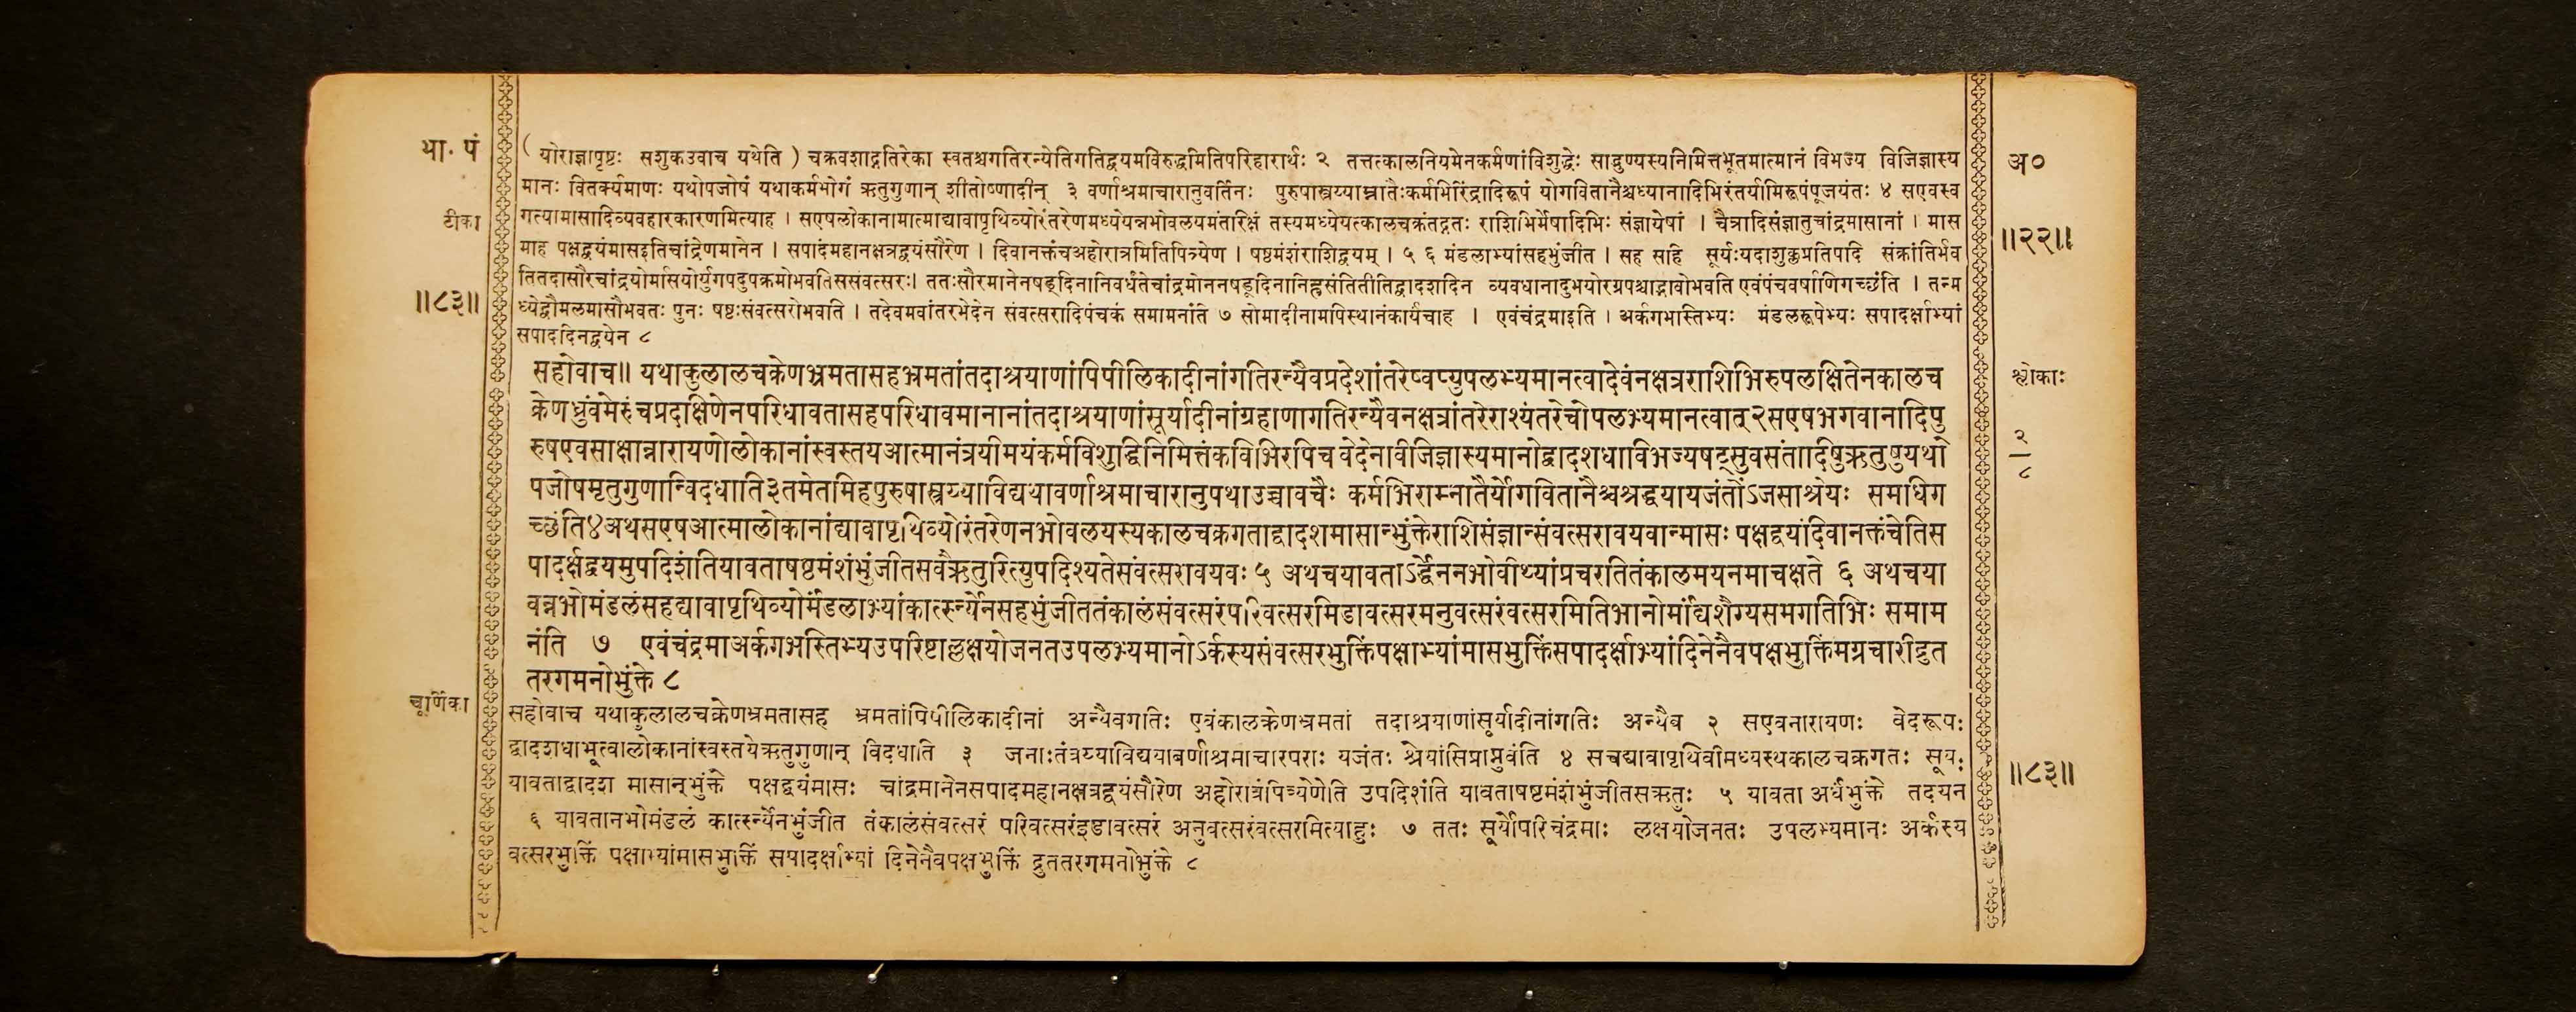 भा. पं
टीका
॥८३॥
(योराज्ञापृष्टः सशुकउवाच यथेति) चक्रवशाद्गतिरेका स्वतश्चगतिरन्येतिगतिद्वयमविरुद्धमितिपरिहारार्थः २ तत्तत्कालनियमेनकर्मणांविशुद्धेः साद्गुण्यस्यनिमित्तभूतमात्मानं विभज्य विजिज्ञास्य
मानः वितर्क्यमाणः यथोपजोषं यथाकर्मभोगं ऋतुगुणान् शीतोष्णादीन् ३ वर्णाश्रमाचारानुवर्तिनः पुरुषास्त्रय्याम्नातैःकर्मभिरिंद्रादिरूपं योगवितानैश्चध्यानादिभिरंतर्यामिरूपंपूजयंतः ४ सएवस्व
गत्यामासादिव्यवहारकारणमित्याह । सएषलोकानामात्माद्यावापृथिव्योरंतरेणमध्येयन्नभोवलयमंतरिक्षं तस्यमध्येयत्कालचक्रंतद्गतः राशिभिर्मेषादिभिः संज्ञायेषां । चैत्रादिसंज्ञातुचांद्रमासानां । मास
माह पक्षद्वयंमासइतिचांद्रेणमानेन । सपादंमहानक्षत्रद्वयंसौरेण । दिवानक्तंचअहोरात्रमितिपित्र्येण । षष्ठमंशंराशिद्वयम् । ५ ६ मंडलाभ्यांसहभुंजीत । सह साहि सूर्यःयदाशुक्लप्रतिपदि संक्रांतिर्भव
तितदासौरचांद्रयोर्मासयोर्युगपदुपक्रमोभवतिससंवत्सरः। ततःसौरमानेनषड्दिनानिवर्धंतेचांद्रमोननषड्दिनानिह्रसंतितीतिद्वादशदिन व्यवधानादुभयोरग्रपश्चाद्भावोभवति एवंपंचवर्षाणिगच्छंति । तन्म
ध्येद्वौमलमासौभवतः पुनः षष्टःसंवत्सरोभवति । तदेवमवांतरभेदेन संवत्सरादिपंचकं समामनंति ७ सोमादीनामपिस्थानंकार्यंचाह । एवंचंद्रमाइति । अर्कगभास्तिभ्यः मंडलरूपेभ्यः सपादर्क्षाभ्यां
सपाददिनद्वयेन ८
सहोवाच॥ यथाकुलालचक्रेणभ्रमतासहभ्रमतांतदाश्रयाणांपिपीलिकादीनांगतिरन्यैवप्रदेशांतरेष्वप्युपलभ्यमानत्वादेवंनक्षत्रराशिभिरुपलक्षितेनकालच
क्रेणध्रुवंमेरुंचप्रदक्षिणेनपरिधावतासहपरिधावमानानांतदाश्रयाणांसूर्यादीनांग्रहाणागतिरन्यैवनक्षत्रांतरेराश्यंतरेचोपलभ्यमानत्वात् २सएषभगवानादिपु
रुषएवसाक्षान्नारायणोलोकानांस्वस्तयआत्मानंत्रयीमयंकर्मविशुद्धिनिमित्तंकविभिरपिच वेदेनाविजिज्ञास्यमानोद्वादशधाविभज्यषट्सुवसंतादिषुऋतुषुयथो
पजोषमृतुगुणान्विदधाति३तमेतमिहपुरुषास्त्रय्याविद्ययावर्णाश्रमाचारानुपथाउच्चावचैः कर्मभिराम्नातैर्योगवितानैश्चश्रद्धयायजंतोंऽजसाश्रेयः समधिग
च्छंति४अथसएषआत्मालोकानांद्यावापृथिव्योरंतरेणनभोवलयस्यकालचक्रगताद्वादशमासान्भुंक्तेराशिसंज्ञान्संवत्सरावयवान्मासः पक्षद्वयंदिवानक्तंचेतिस
पादर्क्षद्वयमुपदिशंतियावताषष्ठमंशंभुंजीतसवैऋतुरित्युपदिश्यतेसंवत्सरावयवः ५ अथचयावताऽर्द्धेननभोवीथ्यांप्रचरतितंकालमयनमाचक्षते ६ अथचया
वन्नभोमंडलंसहद्यावापृथिव्योर्मंडलाभ्यांकार्त्स्न्येनसहभुंजीततंकालंसंवत्सरंपरिवत्सरमिडावत्सरमनुवत्सरंवत्सरमितिभानोर्मांद्यशैग्यसमगतिभिः समाम
नंति ७ एवंचंद्रमाअर्कगभस्तिभ्यउपरिष्टाल्लक्षयोजनतउपलभ्यमानोऽर्कस्यसंवत्सरभुक्तिंपक्षाभ्यांमासभुक्तिंसपादर्क्षाभ्यांदिनेनैवपक्षभुक्तिमग्रचारीद्रुत
तरगमनोभुंक्ते ८
चूर्णिका
सहोवाच यथाकुलालचक्रेणभ्रमतासह भ्रमतांपिपीलिकादीनां अन्यैवगतिः एवंकालक्रेणभ्रमतां तदाश्रयाणांसूर्यादीनांगतिः अन्यैव २ सएवनारायणः वेदरूपः
द्वादशधाभूत्वालोकानांस्वस्तयेऋतुगुणान् विदधाति ३ जनाःतंत्रय्याविद्ययावर्णाश्रमाचारपराः यजंतः श्रेयांसिप्राप्नुवंति ४ सचद्यावापृथिवीमध्यस्थकालचक्रगतः सूयः
यावताद्वादश मासान्भुंक्ते पक्षद्वयंमासः चांद्रमानेनसपादमहानक्षत्रद्वयंसौरेण अहोरात्रंपित्र्येणेति उपदिशंति यावताषष्टमंशंभुंजीतसऋतुः ५ यावता अर्धंभुंक्ते तदयन
६ यावतानभोमंडलं कार्त्स्न्येनभुंजीत तंकालंसंवत्सरं परिवत्सरंइडावत्सरं अनुवत्सरंवत्सरमित्याहुः ७ ततः सूर्योपरिचंद्रमाः लक्षयोजनतः उपलभ्यमानः अर्कस्य
वत्सरभुक्तिं पक्षाभ्यांमासभुक्तिं सपादर्क्षाभ्यां दिनेनैवपक्षभुक्तिं द्रुततरगमनोभुंक्ते ८
अ०
॥२२॥
श्लोकाः
२
८
॥८३॥